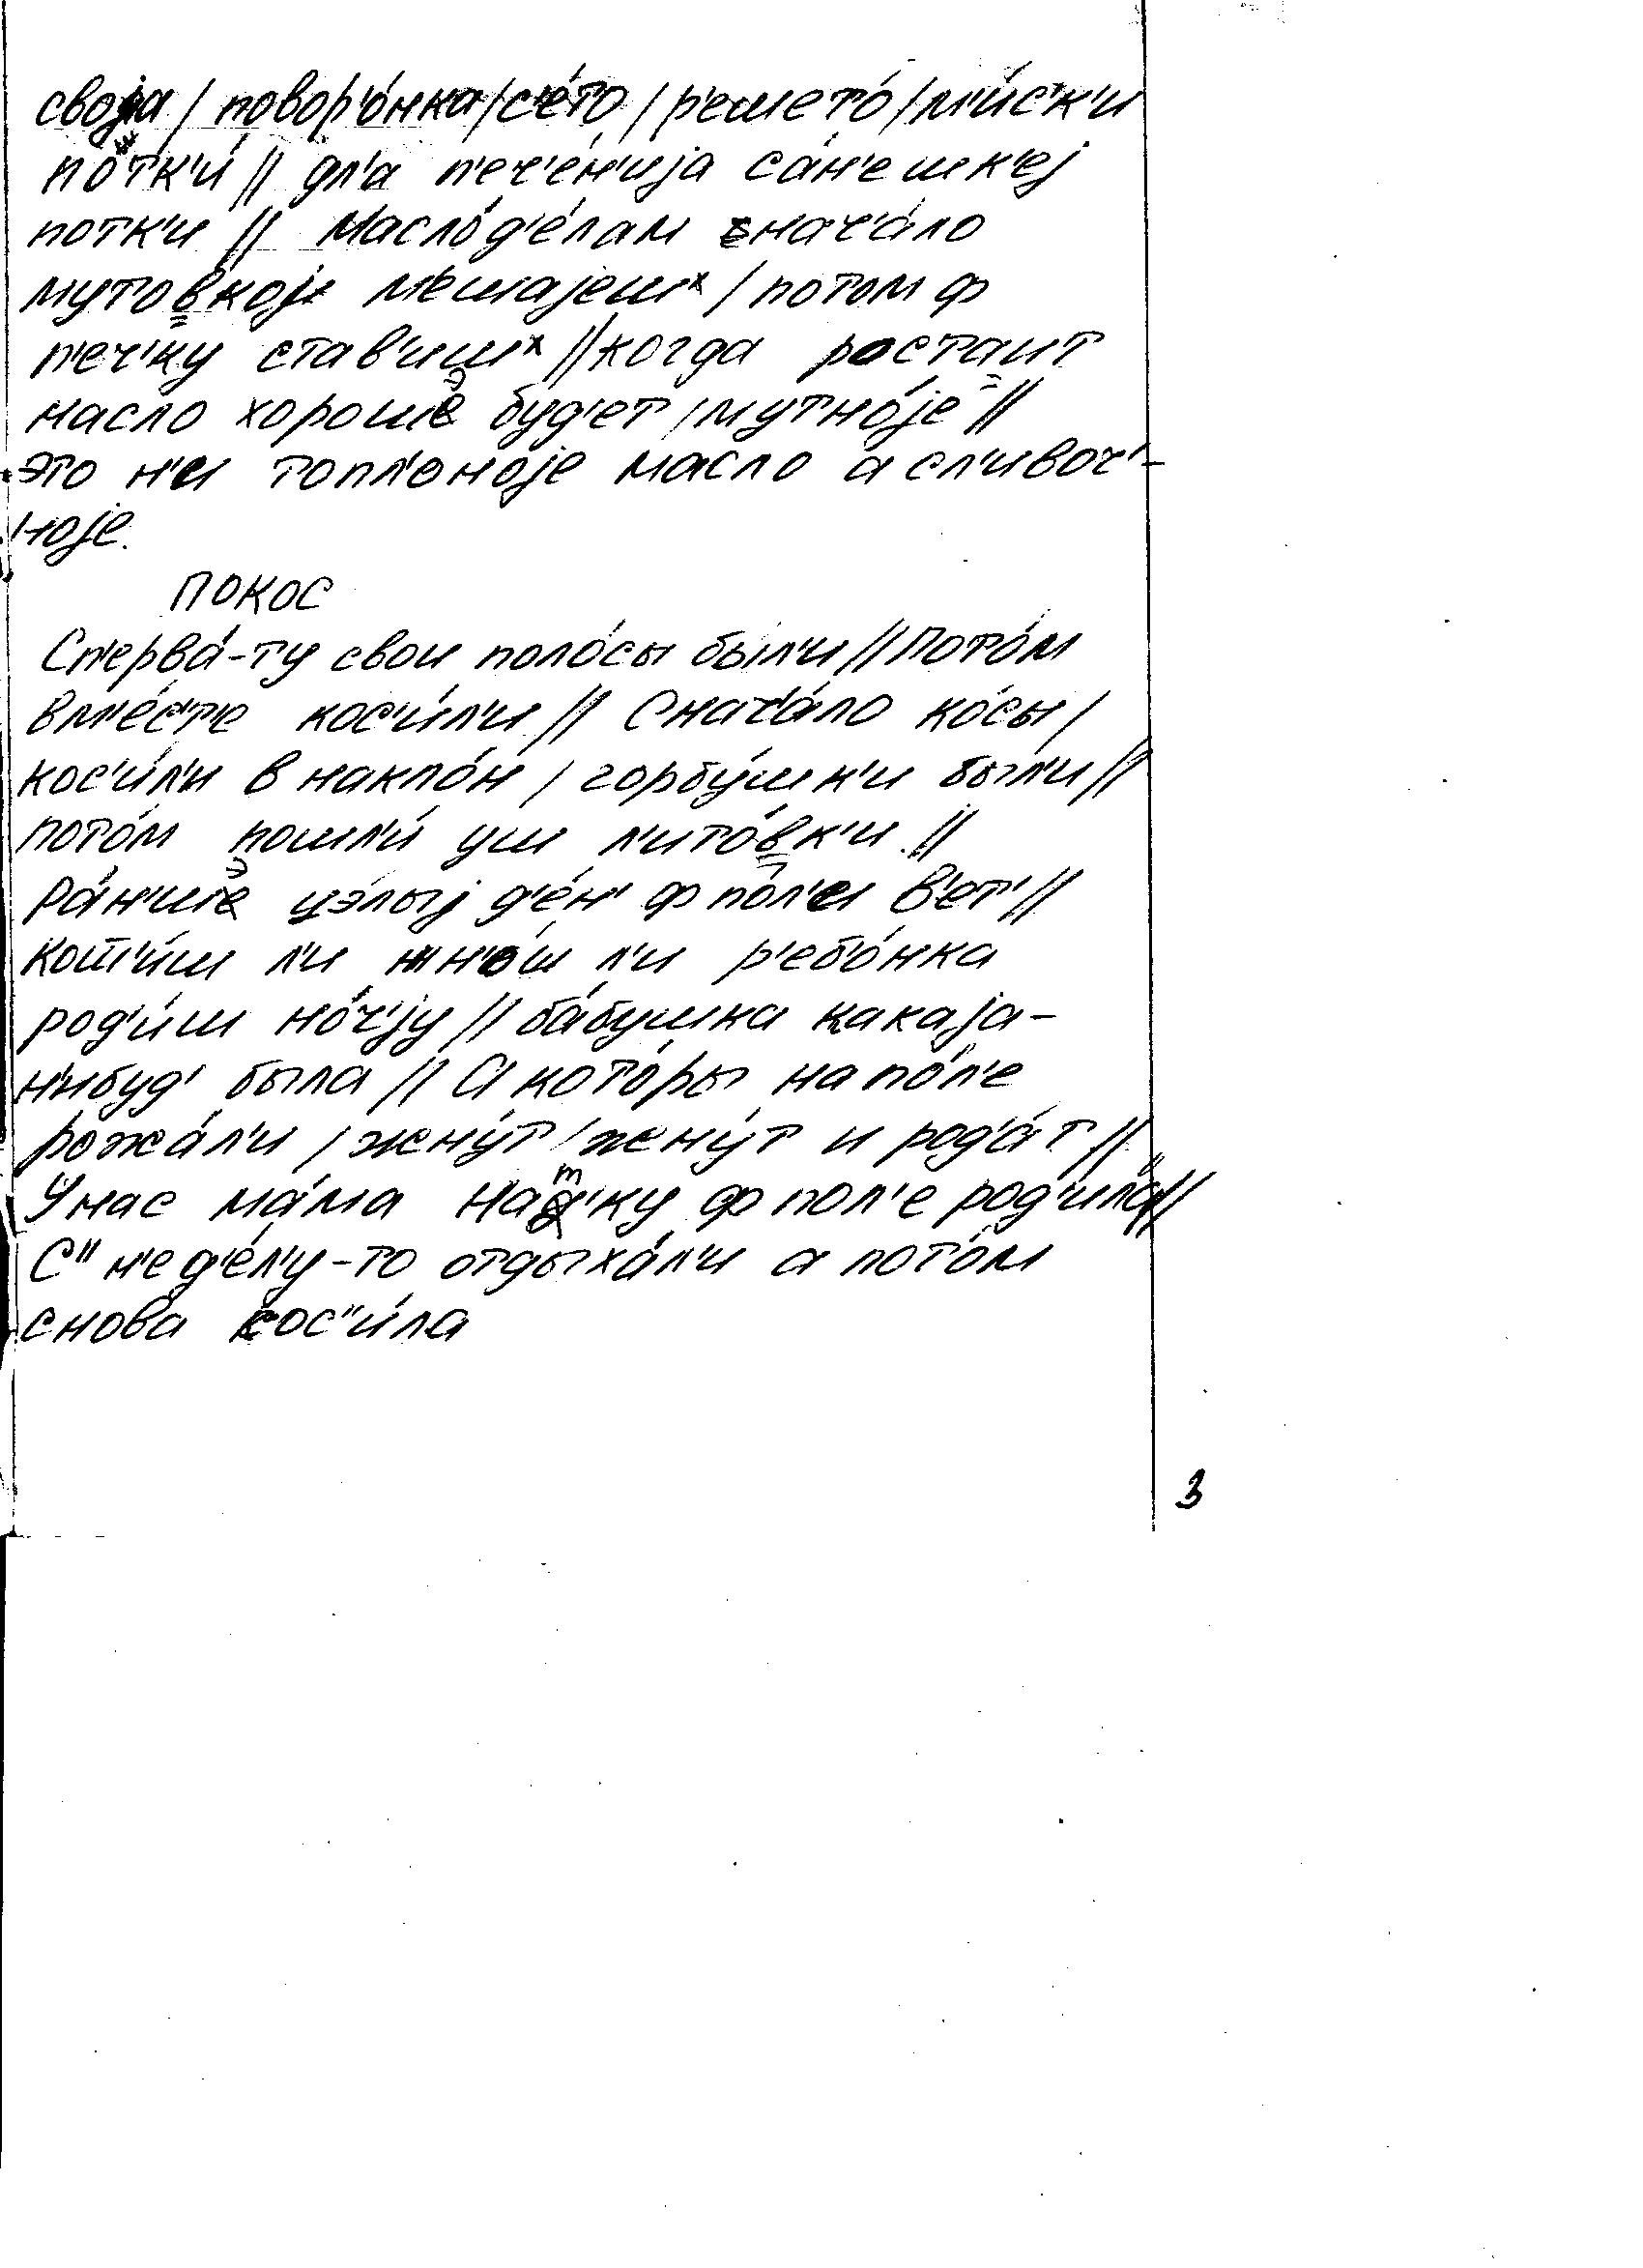 својa / повор'о́нка / с'е́то / р'ешето́ / м'и́с'к'и
по́тк'и́ // дл'а п'еч'е́н'ија са́н'ешк'еј
потк'и // Масло́ д'е́лам снач'а́ло
мутовкој м'ешајеш / потом ф
п'еч'ку став'иш // когда ростаит
масло хорошэ буд'ет / мутно́је //
это н'и топл'оноје масло а сл'ивоч'-
ноје.
ПОКОС
Сп'ерва́-ту свои поло́сы был'и // Пото́м
вм'е́с'т'е кос'и́л'и // Снач'а́ло ко́сы /
кос'и́л'и в накло́н / горбу́шк'и был'и //
пото́м пошл'и́ уш л'ито́вк'и //
Ра́н'шэ цэ́лыј д'е́н' ф по́л'и в'ет' //
кот'и́ш л'и жн'о́ш л'и р'еб'о́нка
род'и́ш но́ч'ју // ба́бушка какаја-
н'ибуд' была // А кото́ры на по́л'е
рожа́л'и / жну́т / жену́т и род'а́т //
У нас ма́ма Нат'ку ф пол'е род'ила //
С" н'ед'е́л'у-то отдыха́л'и а пото́м
снова кос"и́ла
3